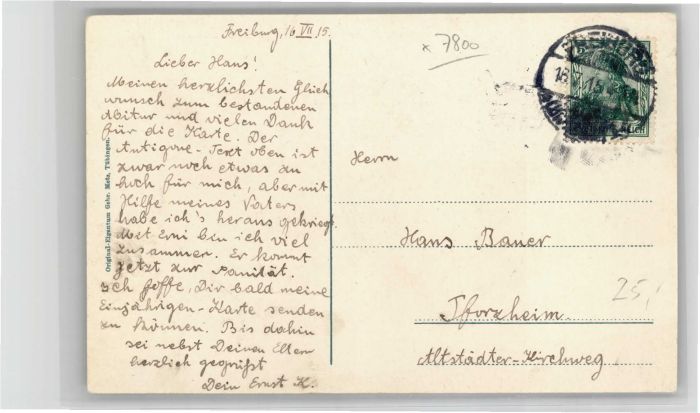 Freiburg, 16 VII 15.
Lieber Hans!
Meinen herzlichsten Glück
wunsch zum bestandenen
Abitur und vielen Dank
für die Karte. Der
Antigone-Text oben ist
zwar noch etwas zu
hoch für mich, aber mit
Hilfe meines Vaters
habe ich's heraus gekriegt.
Mit Erni bin ich viel
zusammen. Er kommt
jetzt zur Sanität.
Ich hoffe, Dir bald meine
Einjährigen-Karte senden
zu können. Bis dahin
sei nebst Deinen Eltern
herzlich gegrüßt
Dein Ernst K.
Original-Eigentum Gebr. Metz, Tübingen.
x 7800
Herrn
Hans Bauer
Pforzheim.
Altstädter-Kirchweg
25,-